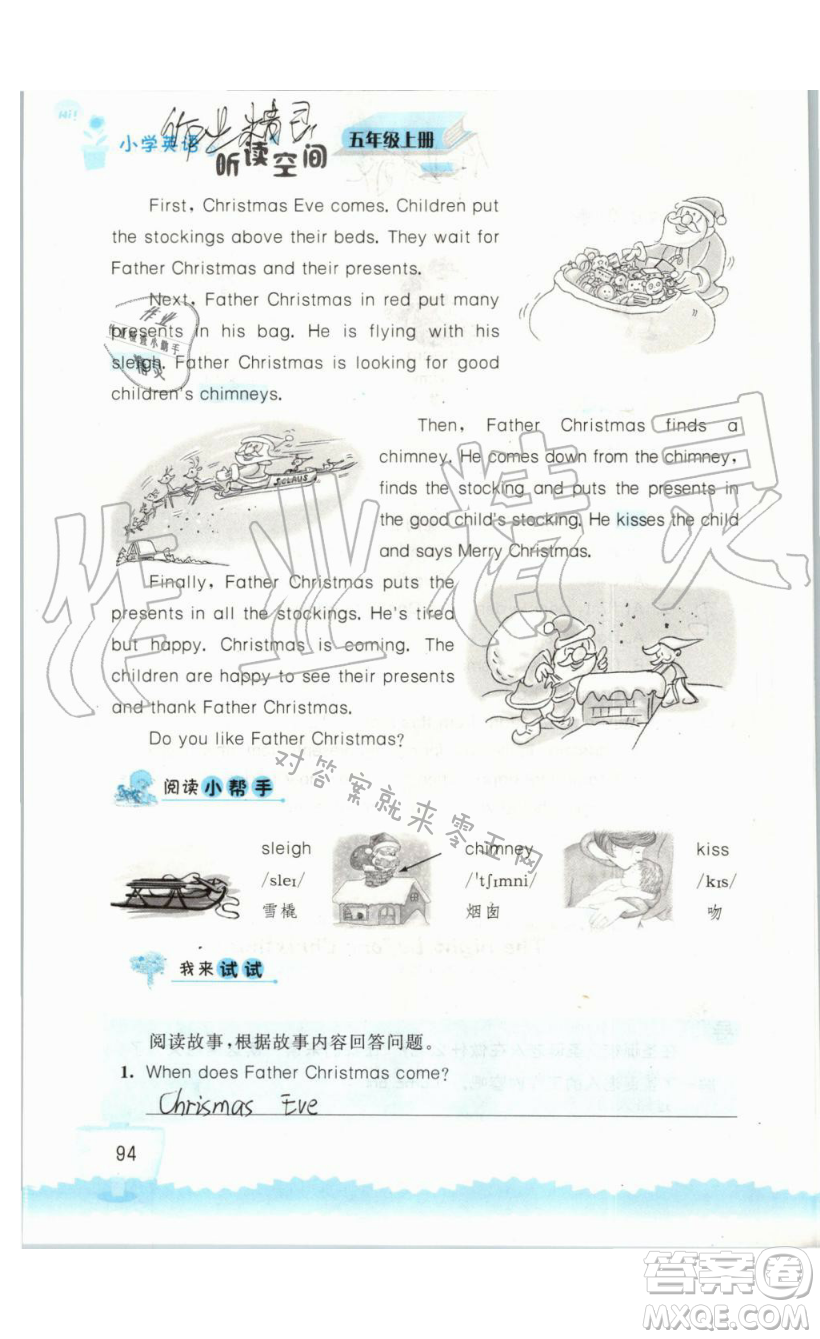 Hi!
小学英语
作业精灵
听读空间
五年级上册
First, Christmas Eve comes. Children put
the stockings above their beds. They wait for
Father Christmas and their presents.
Next, Father Christmas in red put many
presents in his bag. He is flying with his
sleigh. Father Christmas is looking for good
children's chimneys.
作业
检查小助手
精灵
S.CLAUS
Then, Father Christmas finds a
chimney. He comes down from the chimney,
finds the stocking and puts the presents in
the good child's stocking. He kisses the child
and says Merry Christmas.
作业精灵
Finally, Father Christmas puts the
presents in all the stockings. He's tired
but happy. Christmas is coming. The
children are happy to see their presents
and thank Father Christmas.
Do you like Father Christmas?
对答案就来零五网
阅读小帮手
sleigh chimney kiss
/sleɪ/ /ˈtʃɪmni/ /kɪs/
雪橇 烟囱 吻
我来试试
阅读故事,根据故事内容回答问题。
1. When does Father Christmas come?
Chrismas Eve
94
答案卷
MXQE.COM